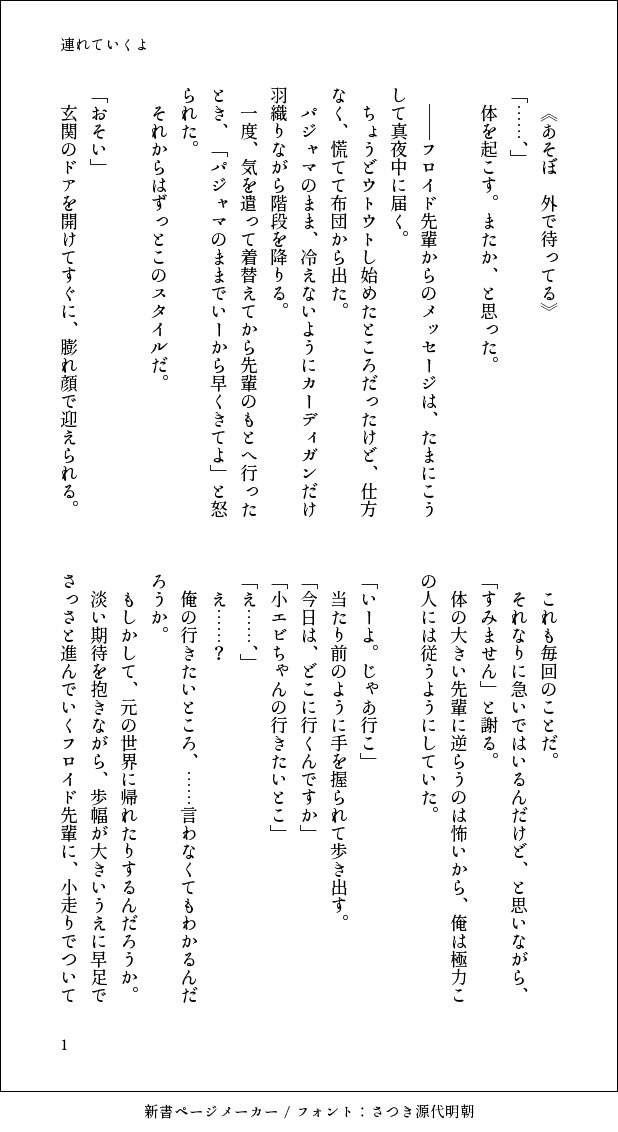 連れていくよ
《あそぼ　外で待ってる》
「……、」
体を起こす。またか、と思った。
――フロイド先輩からのメッセージは、たまにこう
して真夜中に届く。
ちょうどウトウトし始めたところだったけど、仕方
なく、慌てて布団から出た。
パジャマのまま、冷えないようにカーディガンだけ
羽織りながら階段を降りる。
一度、気を遣って着替えてから先輩のもとへ行った
とき、「パジャマのままでいーから早くきてよ」と怒
られた。
それからはずっとこのスタイルだ。
「おそい」
玄関のドアを開けてすぐに、膨れ顔で迎えられる。
これも毎回のことだ。
それなりに急いではいるんだけど、と思いながら、
「すみません」と謝る。
体の大きい先輩に逆らうのは怖いから、俺は極力こ
の人には従うようにしていた。
「いーよ。じゃあ行こ」
当たり前のように手を握られて歩き出す。
「今日は、どこに行くんですか」
「小エビちゃんの行きたいとこ」
「え……、」
え……？
俺の行きたいところ、……言わなくてもわかるんだ
ろうか。
もしかして、元の世界に帰れたりするんだろうか。
淡い期待を抱きながら、歩幅が大きいうえに早足で
さっさと進んでいくフロイド先輩に、小走りでついて
1
新書ページメーカー / フォント：さつき源代明朝